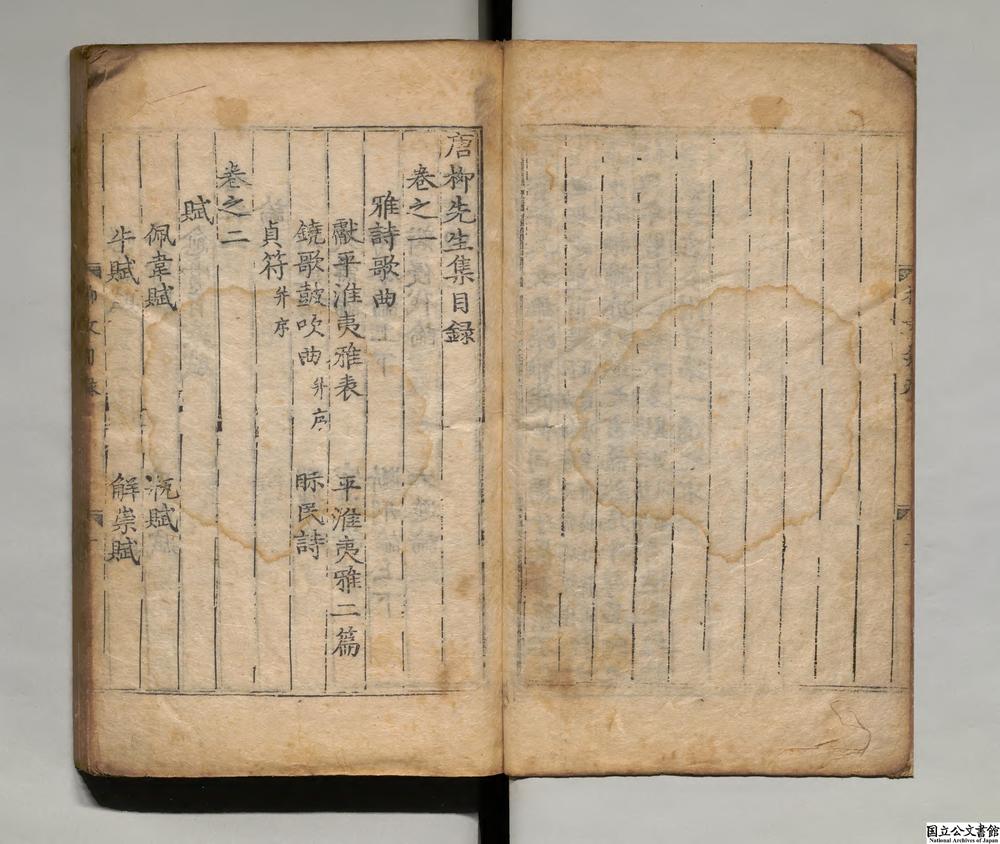 唐柳先生集目録
卷之一
雅詩歌曲
獻平淮夷雅表 平淮夷雅二篇
鐃歌鼓吹曲并序 眎民詩
貞符并序
卷之二
賦
佩韋賦 瓶賦
牛賦 解祟賦
国立公文書館
National Archives of Japan